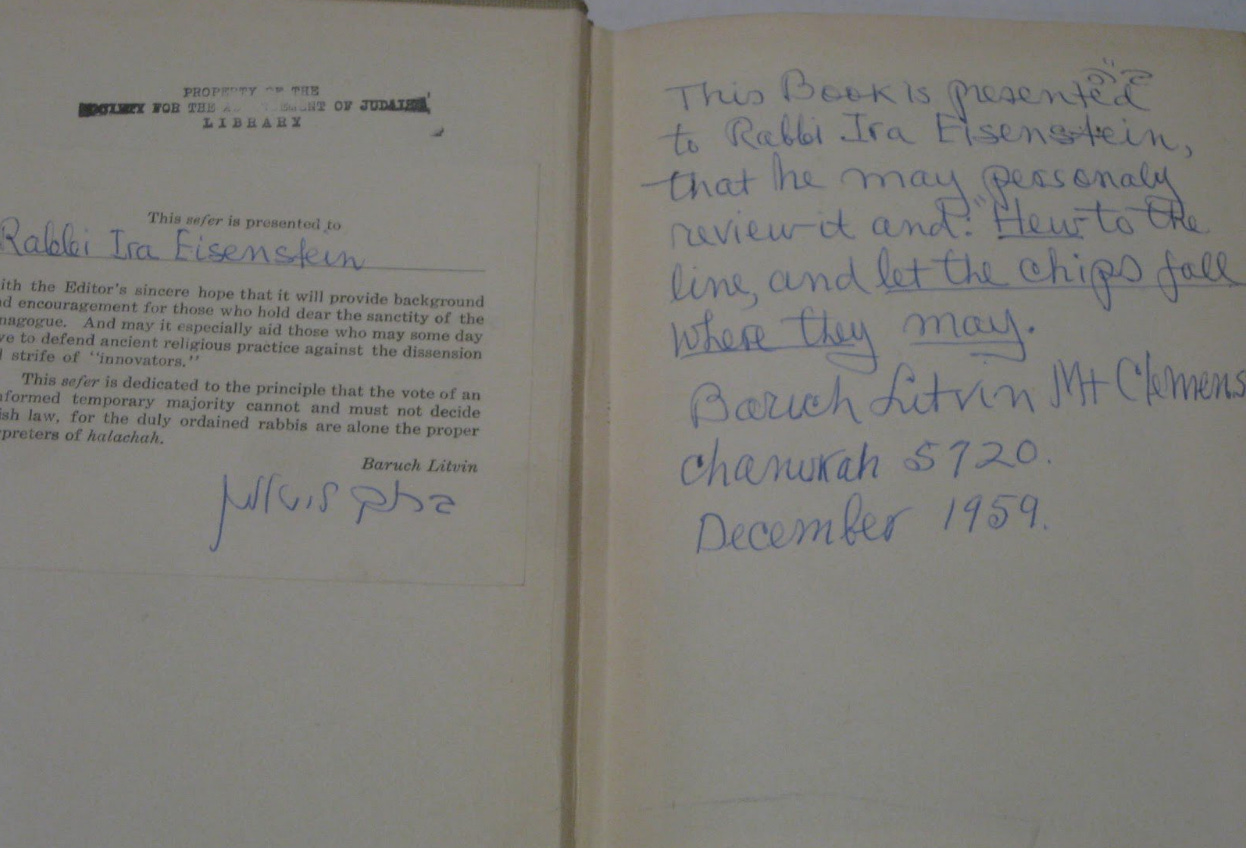 PROPERTY OF THE
SOCIETY FOR THE OF JUDAISM
LIBRARY
This sefer is presented to
Rabbi Ira Eisenstein
ith the Editor's sincere hope that it will provide background
d encouragement for those who hold dear the sanctity of the
nagogue. And may it especially aid those who may some day
ve to defend ancient religious practice against the dissension
strife of "innovators."
This sefer is dedicated to the principle that the vote of an
nformed temporary majority cannot and must not decide
ish law, for the duly ordained rabbis are alone the proper
rpreters of halachah.
Baruch Litvin
This Book is presented
to Rabbi Ira Eisenstein,
that he may personaly
review it and: "Hew to the
line, and let the chips fall
where they may.
Baruch Litvin Mt Clemens
Chanukah 5720.
December 1959.